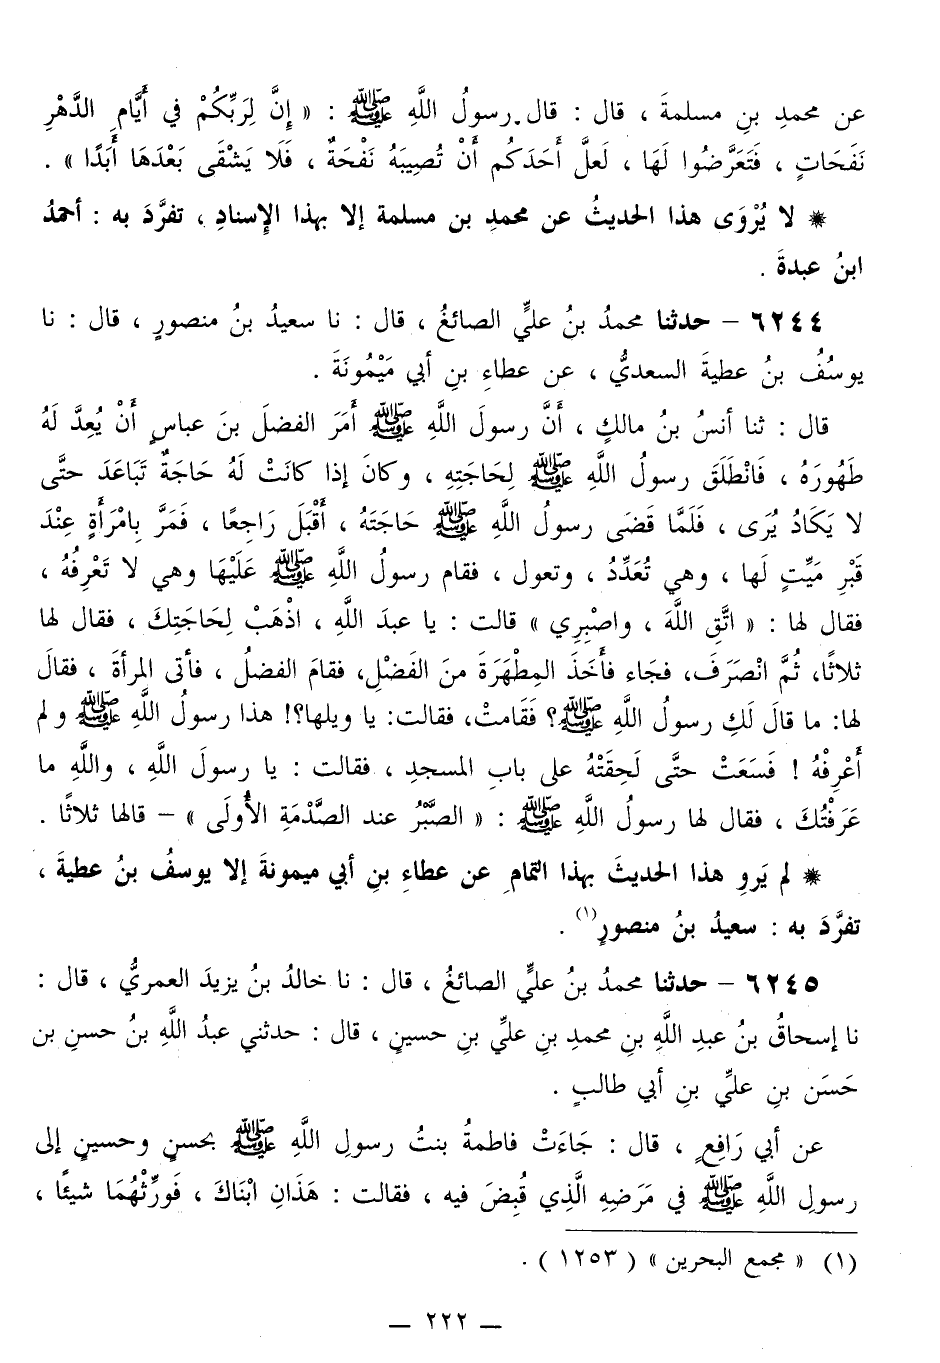 عن محمدِ بنِ مسلمةَ ، قال : قال رسولُ اللَّهِ ﷺ : « إِنَّ لِرَبِّكُمْ في أَيَّامِ الدَّهْرِ
نَفَحَاتٍ ، فَتَعَرَّضُوا لَهَا ، لَعلَّ أَحَدَكُم أَنْ تُصِيبَهُ نَفْحَةٌ ، فَلَا يَشْقَى بَعْدَهَا أَبَدًا » .
* لا يُرْوَى هذا الحديثُ عن محمدِ بن مسلمة إلا بهذا الإِسنادِ ، تفرَّدَ به : أحمدُ
ابنُ عبدةَ .
٦٢٤٤ – حدثنا محمدُ بنُ عليٍّ الصائغُ ، قال : نا سعيدُ بنُ منصورٍ ، قال : نا
يوسُفُ بنُ عطيةَ السعديُّ ، عن عطاءِ بنِ أبي مَيْمُونَةَ .
قال : ثنا أنسُ بنُ مالكٍ ، أَنَّ رسولَ اللَّهِ ﷺ أَمَرَ الفضلَ بنَ عباسٍ أَنْ يُعِدَّ لَهُ
طَهُورَهُ ، فَانْطَلَقَ رسولُ اللَّهِ ﷺ لِحَاجَتِهِ ، وكانَ إذا كانَتْ لَهُ حَاجَةٌ تَبَاعَدَ حتَّى
لا يَكَادُ يُرَى ، فَلَمَّا قَضَى رسولُ اللَّهِ ﷺ حَاجَتَهُ ، أَقْبَلَ رَاجِعًا ، فَمَرَّ بِامْرَأَةٍ عِنْدَ
قَبْرِ مَيِّتٍ لَها ، وهي تُعَدِّدُ ، وتعول ، فقام رسولُ اللَّهِ ﷺ عَلَيْهَا وهي لا تَعْرِفُهُ ،
فقال لها : « اتَّقِ اللَّهَ ، واصْبِرِي » قالت : يا عبدَ اللَّهِ ، اذْهَبْ لِحَاجَتِكَ ، فقال لها
ثلاثًا، ثُمَّ انْصَرَفَ، فجَاء فأَخَذَ المِطْهَرَةَ منَ الفَضْلِ، فقامَ الفضلُ ، فأتى المرأةَ ، فقالَ
لها: ما قالَ لَكِ رسولُ اللَّهِ ﷺ؟ فَقَامتْ، فقالت: يا ويلها؟! هذا رسولُ اللَّهِ ﷺ ولم
أَعْرِفْهُ ! فَسَعَتْ حتَّى لَحِقَتْهُ على بابِ المسجدِ ، فقالت : يا رسولَ اللَّهِ ، واللَّهِ ما
عَرَفْتُكَ ، فقال لها رسولُ اللَّهِ ﷺ : « الصَّبْرُ عند الصَّدْمَةِ الأُولَى » – قالها ثلاثًا .
* لم يَروِ هذا الحديثَ بهذا التمامِ عن عطاءِ بنِ أبي ميمونةَ إلا يوسفُ بنُ عطيةَ ،
تفرَّدَ به : سعيدُ بنُ منصورٍ(١) .
٦٢٤٥ – حدثنا محمدُ بنُ عليٍّ الصائغُ ، قال : نا خالدُ بنُ يزيدَ العمريُّ ، قال :
نا إسحاقُ بنُ عبدِ اللَّهِ بنِ محمدِ بنِ عليِّ بنِ حسينٍ ، قال : حدثني عبدُ اللَّهِ بنُ حسنِ بن
حَسَن بنِ عليِّ بنِ أبي طالبٍ .
عن أبي رَافِعٍ ، قال : جَاءَتْ فاطمةُ بنتُ رسولِ اللَّهِ ﷺ بحسنٍ وحسينٍ إلى
رسولِ اللَّهِ ﷺ في مَرَضِهِ الَّذِي قُبِضَ فيه ، فقالت : هَذَانِ ابْنَاكَ ، فَورِّثْهُمَا شيئًا ،
(١) « مجمع البحرين » ( ١٢٥٣ ) .
— ٢٢٢ —